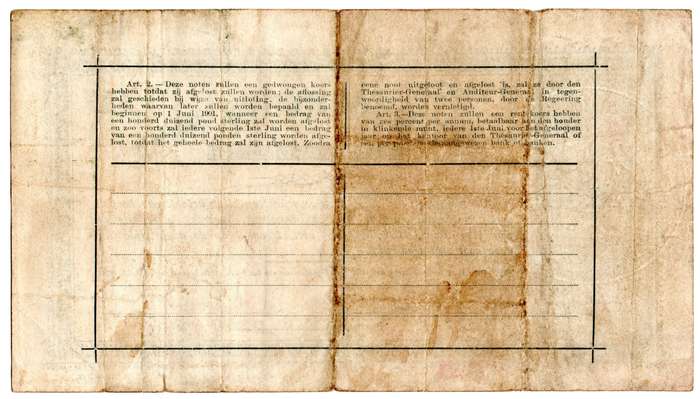 Art. 2. — Deze noten zullen een gedwongen koers
hebben totdat zij afgelost zullen worden; de aflossing
zal geschieden bij wijze van uitloting, de bijzonder-
heden waarvan later zullen worden bepaald en zal
beginnen op 1 Juni 1901, wanneer een bedrag van
een honderd duizend pond sterling zal worden afgelost
en zoo voorts zal iedere volgende 1ste Juni een bedrag
van een honderd duizend ponden sterling worden afge-
lost, totdat het geheele bedrag zal zijn afgelost. Zoodra
eene noot uitgeloot en afgelost is, zal ze door den
Thesaurier-Generaal en Auditeur-Generaal in tegen-
woordigheid van twee personen, door de Regeering
benoemd, worden vernietigd.
Art. 3.—Deze noten zullen een rentekoers hebben
van zes percent per annum, betaalbaar aan den houder
in klinkende munt, iedere 1ste Juni voor het afgeloopen
jaar op het kantoor van den Thesaurier-Generaal of
een per post aangewezen bank of banken.